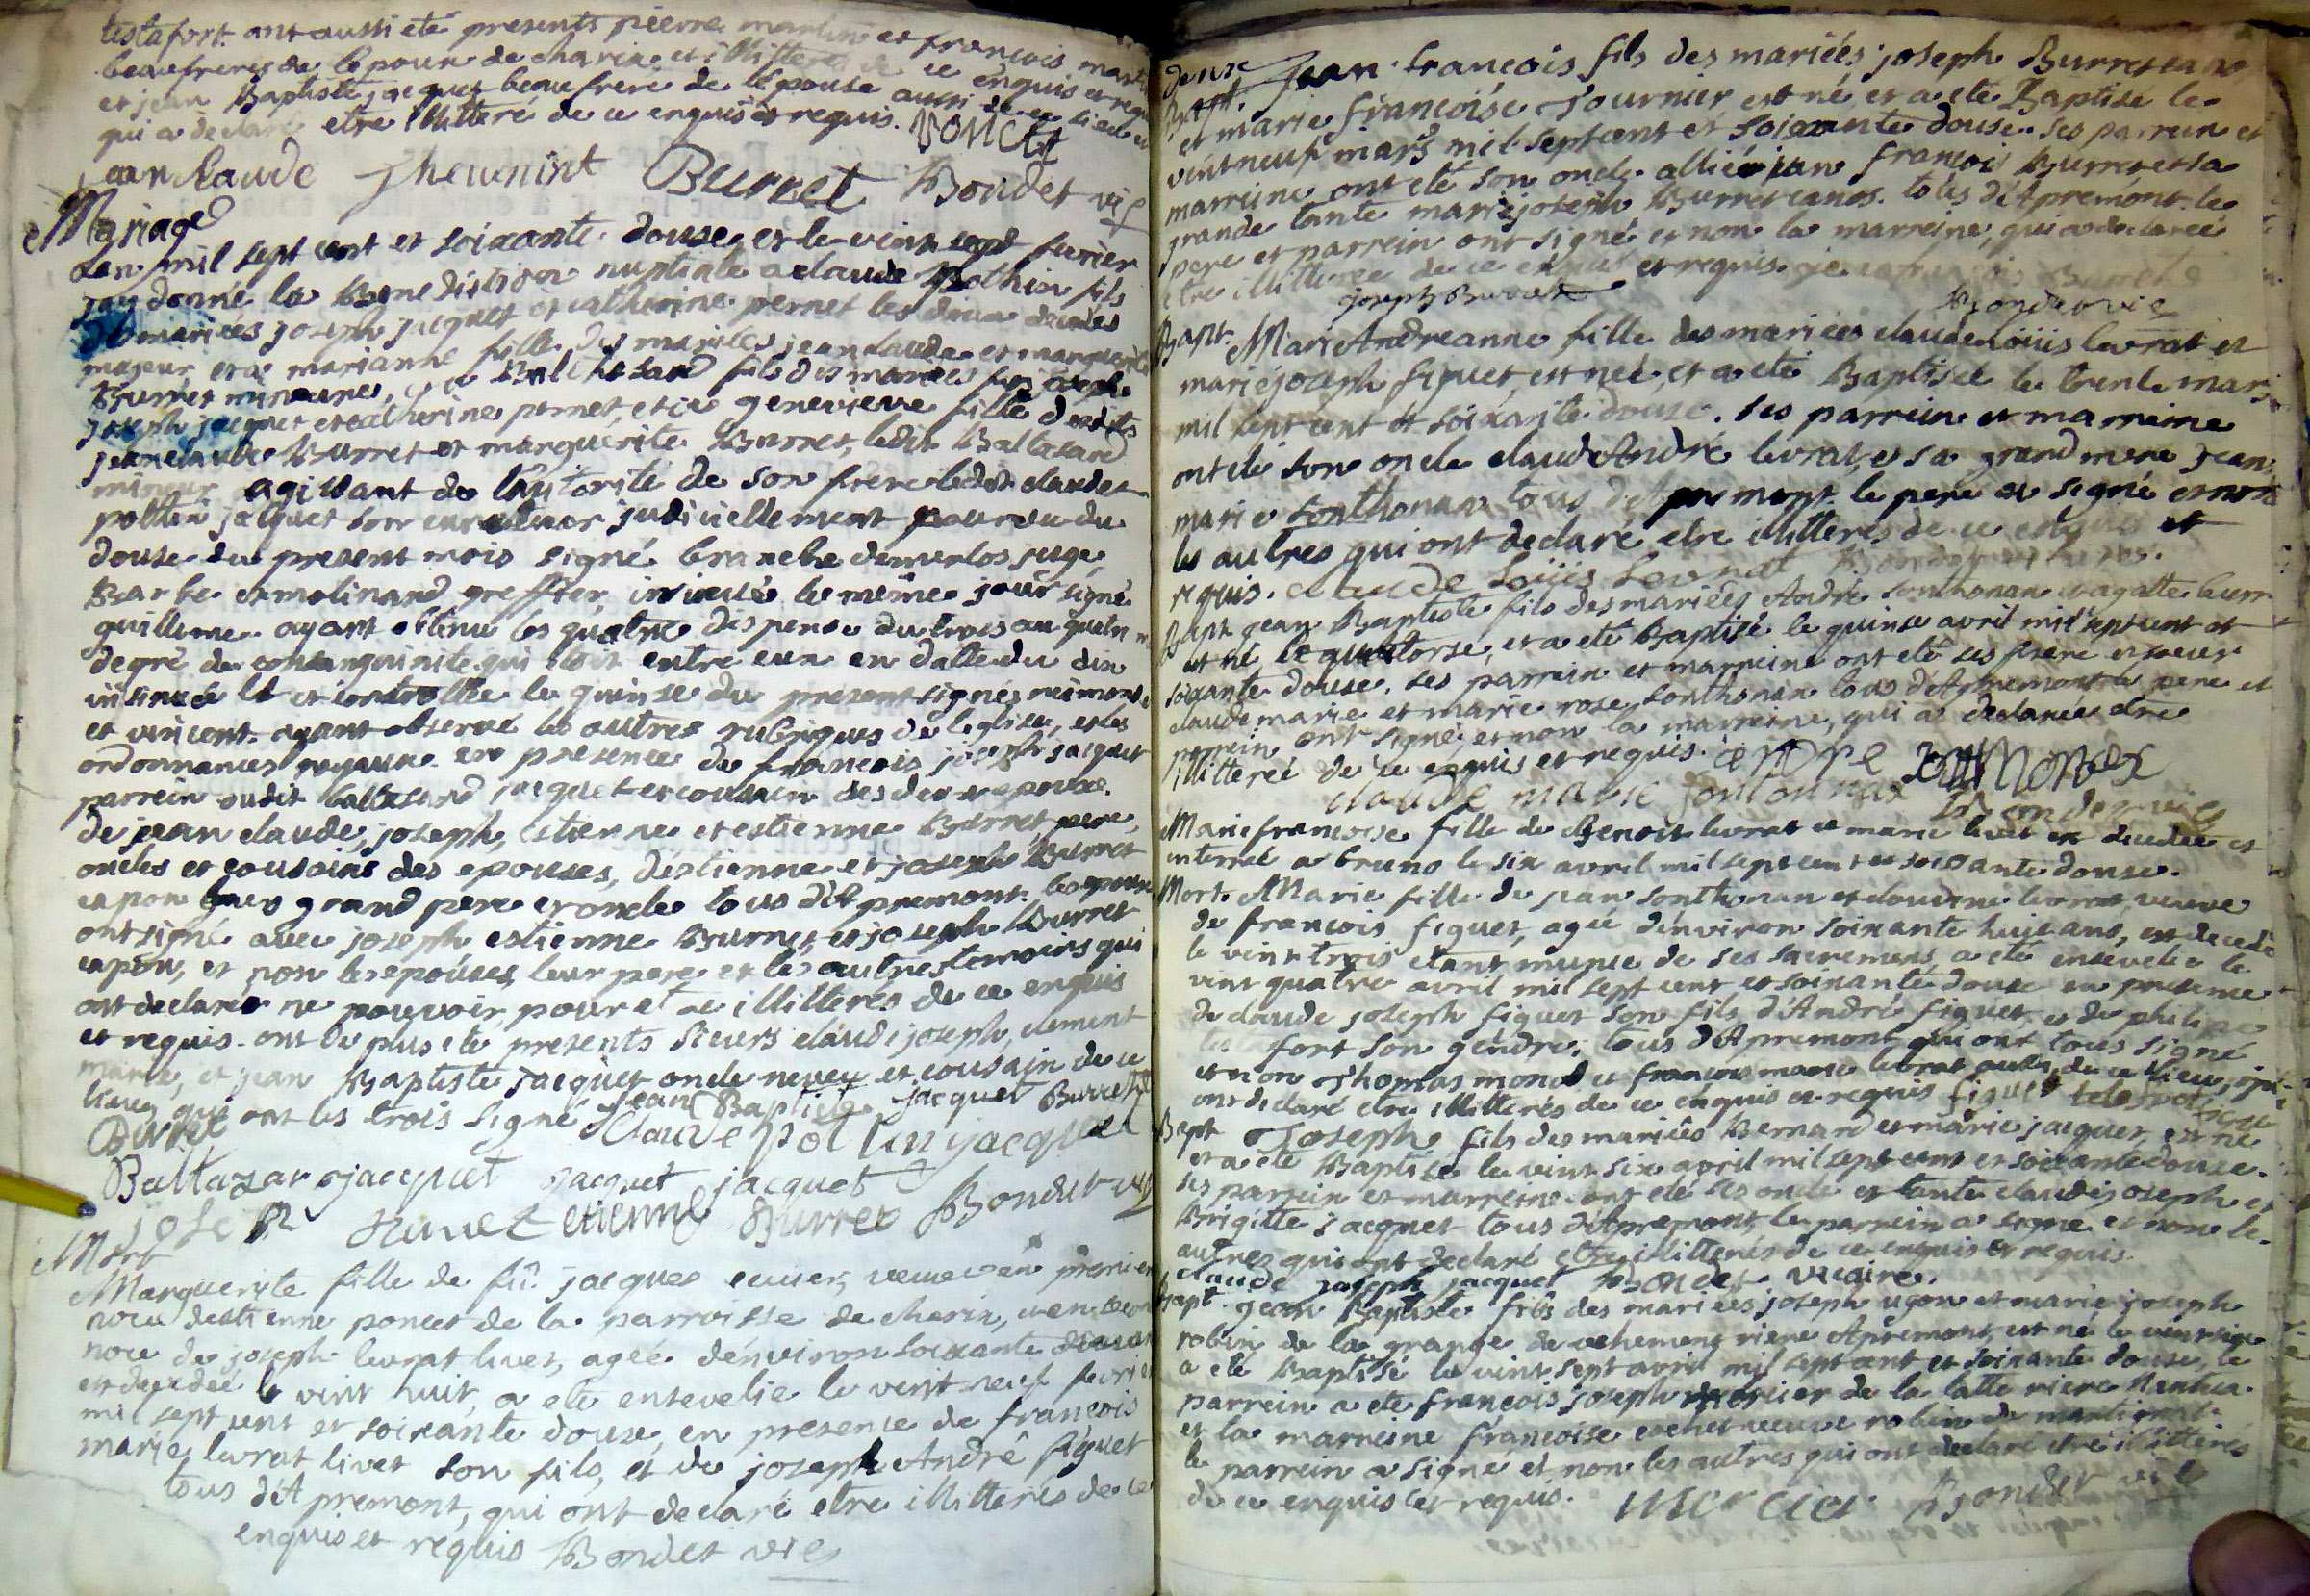 testafort. ont aussi eté presents pierre martin et francois mart
beaufreres de lepoux de charix et illitteres de ce enquis et requ
et jean Baptiste jacquet beaufrere de l'epouse aussi de ce lieu
qui a declaré etre illitteré de ce enquis et requis. VONCET
jean Claude Thevenint Burret Bondet vic
Mariage
Lan mil sept cent et soixante douse, et le vint sept fevrier
jay donné la Benediction nuptiale a claude pothin fils
des mariées joseph jacquet et catherine pernet les deux decedés
majeur et a marianne fille des mariés jean claude et marguerite
Burret mineures, et a Balthesard fils des mariés feu joseph
joseph jacquet et catherine pernet, et a genevieve fille desdits
jean claude Burret et marguerite Burret, ledit Baltesard
mineur agissant de l'autorité de son frere ledit claude
pothin jacquet son curateur judiciellement pourvu du
douse du present mois signé branche demurlos juge,
Barbe et molinard greffier, insinué le même jour signé
guillieme. ayant obtenu les quatre dispense du trois au quatri
degré de consanguinite qui etoit entre eux en datte du dix
insinué et controllée le quinse du present signés reimond
et vincent. ayant observé les autres rubriques de l'eglise, et les
ordonnances royaux en presence de francois joseph jacquet
parrein audit baltesard jacquet et cousin des deux epoux.
de jean claude, joseph, estienne et estienne Burret pere,
oncles et cousins des epouses, d'estienne et joseph Burret
capon leurs grand pere et oncle tous d'Apremont. les epoux
ont signé avec joseph estienne Burret, et joseph Burret
capon, et non les epouses, leur pere et les autres temoins qui
ont declaré ne pouvoir pour etre illitterés de ce enquis
et requis. ont de plus ete presents sieurs claude joseph, clement
marie, et jean Baptiste jacquet oncle neveu et cousin de ce
lieu, qui ont les trois signé Jean Baptiste jacquet Burret
Burret Claude potin jacquet
Baltazar jacquet jacquet jacquet
joseph etienne Burret Bondet vic
Mort
Marguerite fille de fû jacques cuier, veuve en premier
noce d'estienne poncet de la parroisse de cherix, et en second
noce de joseph levrat livet, agée d'environ soixante dix ans
est decedée le vint huit, a ete ensevelie le vent neuf fevrier
mil sept cent et soixante douse, en presence de francois
marie levrat livet son fils, et de joseph André figuet
tous d'Apremont, qui ont declaré etre illitterés de ce
enquis et requis Bondet vic
Bapt. Jean francois fils des mariées joseph Burret canos
et marie francoise Fournier est né et a eté Baptisé le
vintneuf mars mil sept cent et soixante douse. ses parrein et
marreine ont eté son oncle allié jean francois Burret et sa
grande tante marie joseph Burret canos. tous d'Apremont. le
pere et parrein ont signé et non la marreine, qui a declareé
etre illitterée de ce enquis et requis. jean francois Burret
joseph Burret Bondet vic
Bapt. Marie Andreanne fille des mariées claude Loüis levrat et
marie joseph figuet, est née, et a eté Baptisée le trente mars
mil sept cent et soixante douse. ses parrein et marreine
ont eté son oncle claude André levrat, et sa grand mere jean
marie sonthonax tous d'Apremont. le pere a signé et non
les autres qui ont declaré etre illitterés de ce enquis et
requis. claude Loüis Levrat Bondet vicaire.
Bapt jean Baptiste fils des mariées André sonthonax et agatte burr
est né le quatorse, et a eté Baptisé le quinse avril mil sept cent et
soixante douse. ses parrein et marreine ont eté ses frere et soeur
claude marie et marie rose sonthonax tous d'Apremont. le pere et
parrein ont signé, et non la marreine, qui a declareé etre
illitterée de ce enquis et requis. andre sontMonax
claude marie sontonnax Bondet vic
Marie francoise fille de Benoit levrat et marie levet est decedée et
interrée a bruno le six avril mil sept cent et soixante douse.
Mort. Marie fille de jean sonthonax et claudine levrat, veuve
de francois figuet, agée d'environ soixante huit ans, est decedé
le vint trois etant munie de ses sacremens, a eté ensevelie le
vint quatre avril mil sept cent et soixante douse en presence
de claude joseph figuet son fils, d'André figuet, et de philipe
testafort son gendre. tous d'Apremont, qui ont tous signé
et non Thomas monod et francois marie levrat aussi de ce lieu, qui
ont declaré etre illitterés de ce enquis et requis figuet testafort
Bapt Joseph fils des mariées Bernard et marie jacquet, est né
et a eté Baptisé le vint six avril mil sept cent et soixante douse.
ses parrein et marreine ont eté ses oncle et tante claude joseph et
Brigitte jacquet tous d'Apremont, le parrein a signé et non les
autres qui ont declaré etre illitterés de ce enquis et requis.
claude joseph jacquet Bondet vicaire.
Bapt. jean Baptiste fils des mariées joseph ugon et marie joseph
robin de la grange de riere Apremont, est né le vint six
a eté Baptisé le vint sept avril mil sept cent et soixante douse, le
parrein a ete francois joseph mercier de la latte riere Nantua.
et la marreine francoise cochet veuve robin de martignat.
le parrein a signé et non les autres qui ont declaré etre illitterés
de ce enquis et requis. mercier Bondet vic